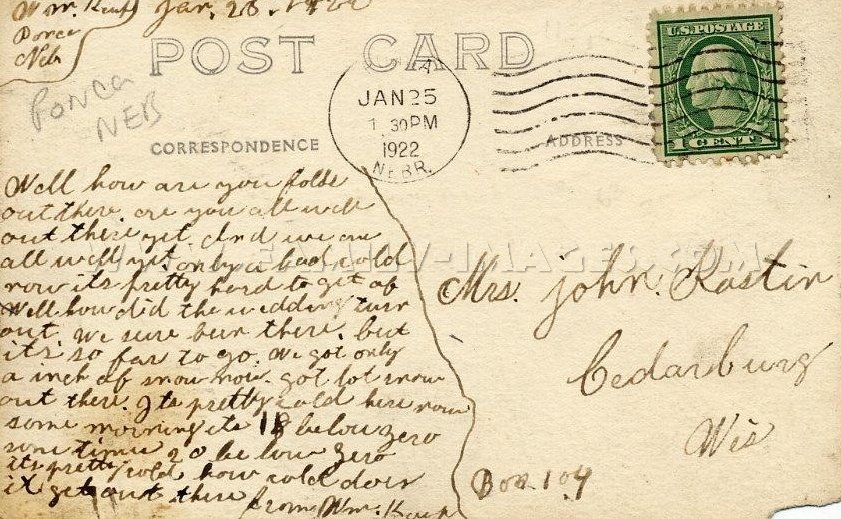 Wm. Kay Jan. 25. 1922
Ponca
Neb
POST CARD
Ponca
NEB
JAN 25
1 30 PM
1922
NEBR.
U.S. POSTAGE
1 CENT 1
CORRESPONDENCE
ADDRESS
Well how are you folks
out there. are you all well
out there yet. And we are
all well yet. only a bad cold
now its pretty hard to get of
Well how did the wedding turn
out. We sure ben there. but
it's so far to go. We got only
a inch of snow now. got lot snow
out there. Its pretty cold here now
some morning its 18 below zero
some times 20 below zero
its pretty cold how cold does
it get out there
from Wm.
Mrs. John. Kastin
Cedarburg
Wis
Box. 104